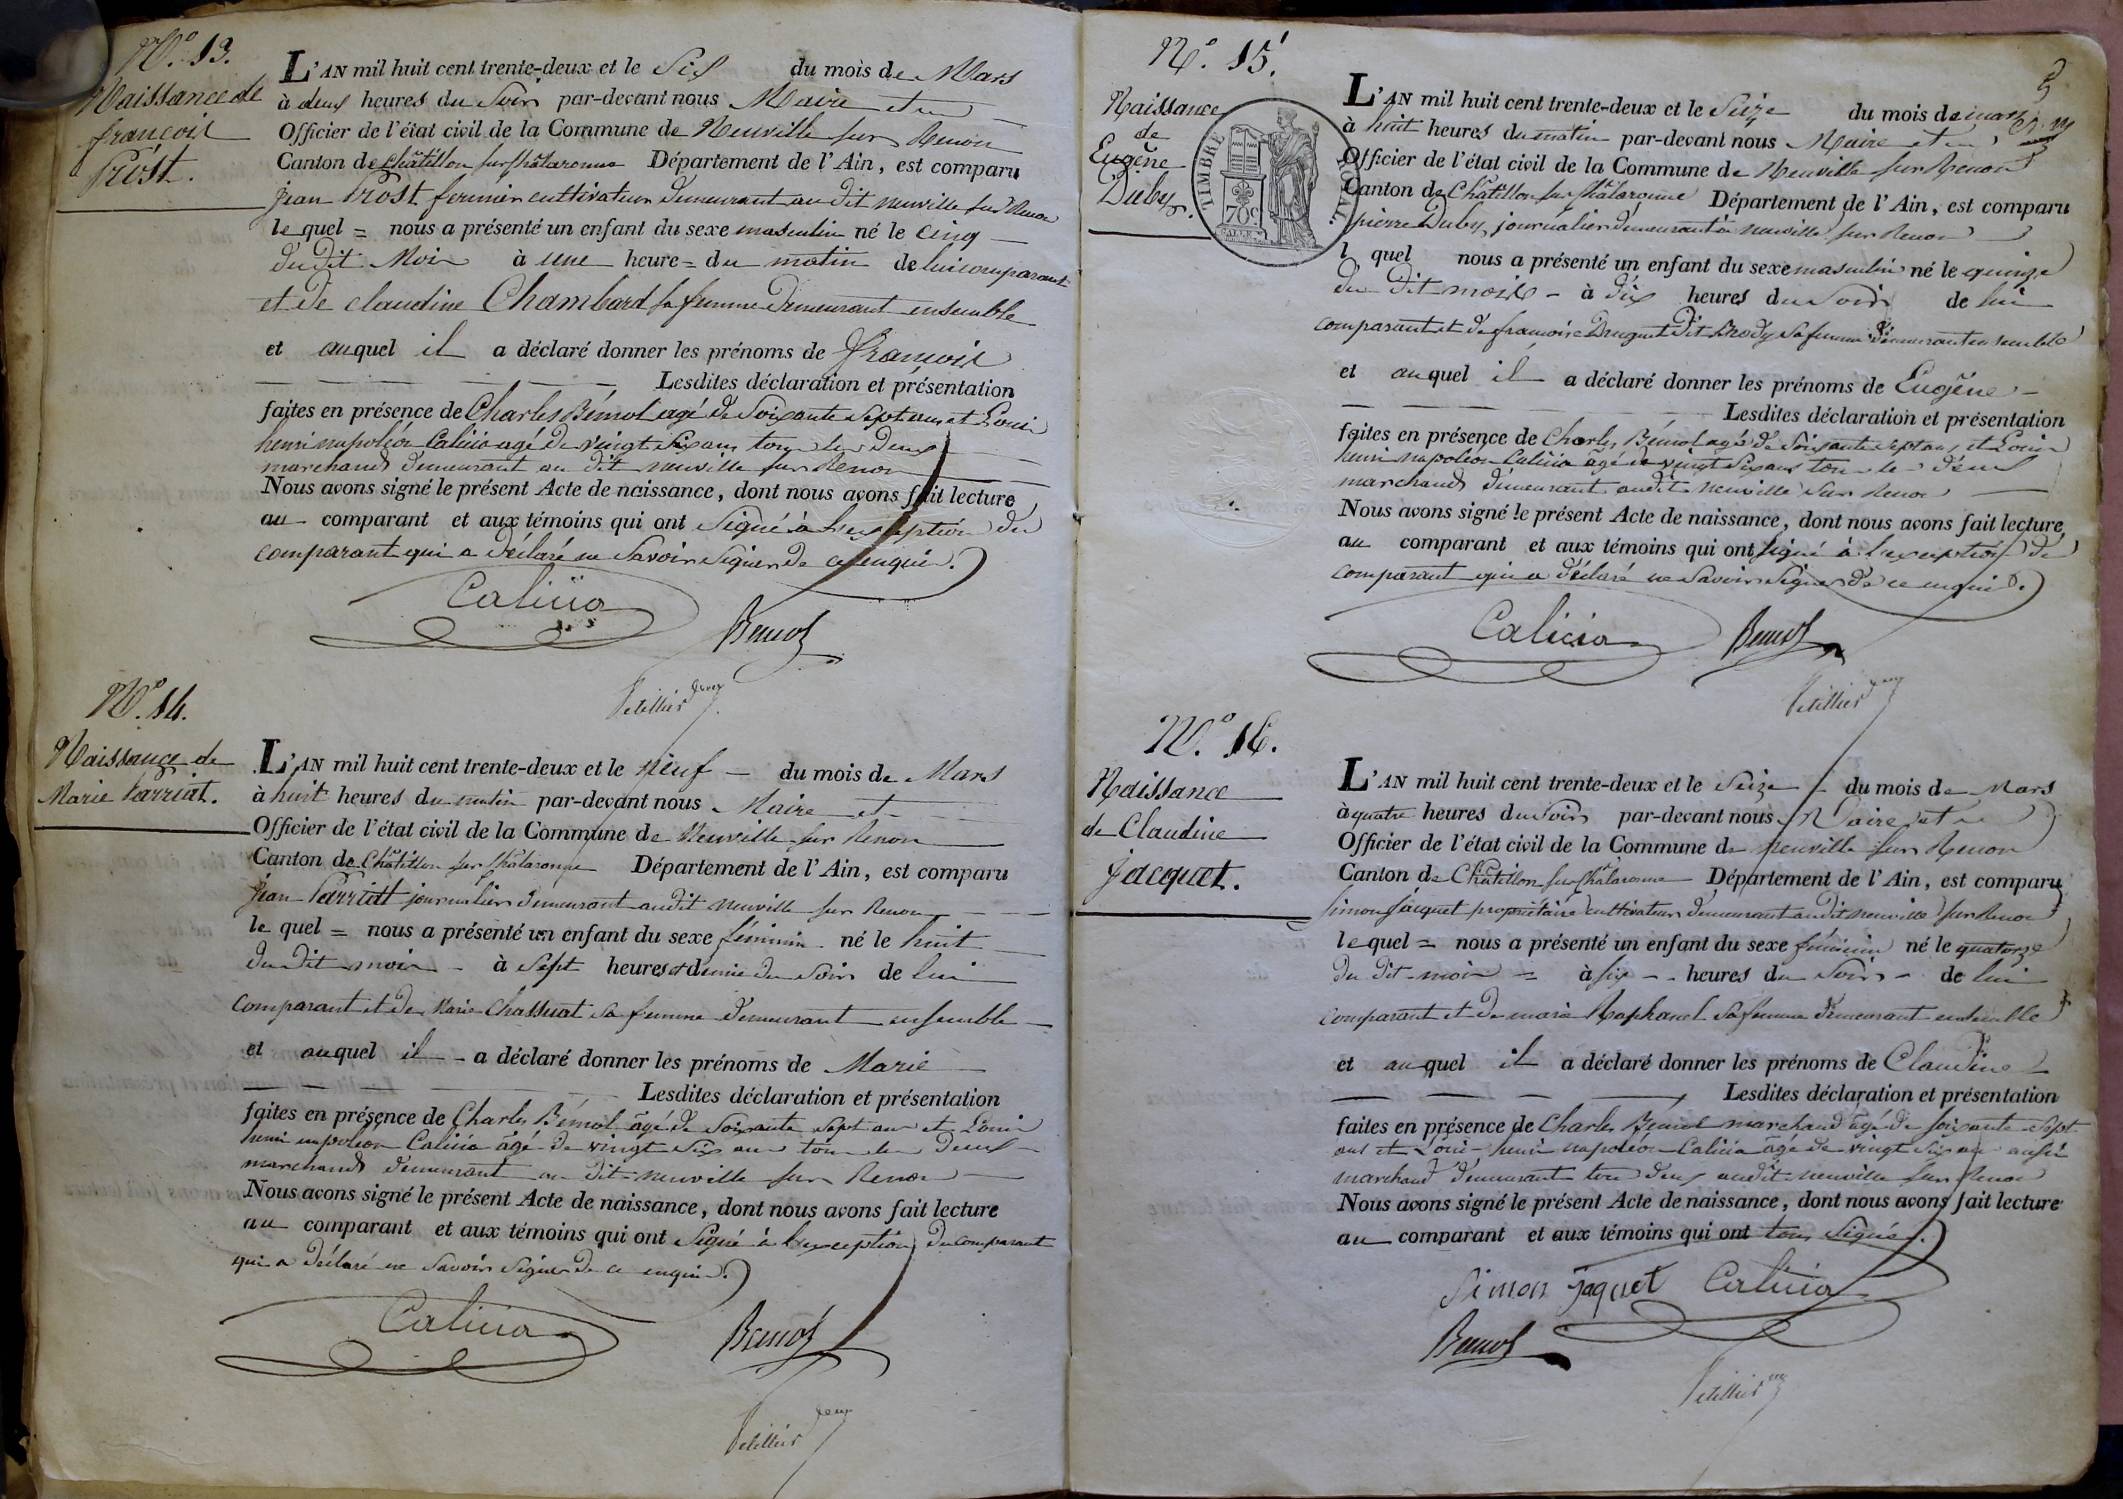 N.° 13.
Naissance de
françois
Prost.
L'AN mil huit cent trente-deux et le Six du mois de Mars
à deux heures du Soir par-devant nous Maire et
Officier de l'état civil de la Commune de Neuville sur Renon
Canton de Châtillon sur Chalaronne Département de l'Ain, est comparu
Jean Prost fermier cultivateur demeurant au dit neuville sur Renon
le quel = nous a présenté un enfant du sexe masculin né le cinq
du dit Mois à une heure = du matin de lui comparant
et de claudine Chambard sa femme demeurant ensemble
et auquel il a déclaré donner les prénoms de François
Lesdites déclaration et présentation
faites en présence de Charles Bémol agé de Soixante Sept ans et Louis
henri napoléon Calicia agé de vingt Six ans tous les deux
marchands demeurant au dit neuville sur Renon
Nous avons signé le présent Acte de naissance, dont nous avons fait lecture
au comparant et aux témoins qui ont Signé à l'exception du
comparant qui a déclaré ne Savoir Signer de ce enquis.
Calicia
Bemol
N.° 14.
Naissance de
Marie Varriat.
L'AN mil huit cent trente-deux et le neuf du mois de Mars
à huit heures du matin par-devant nous Maire et
Officier de l'état civil de la Commune de Neuville sur Renon
Canton de Châtillon sur Chalaronne Département de l'Ain, est comparu
Jean Varriat journalier demeurant au dit neuville sur Renon
le quel = nous a présenté un enfant du sexe féminin né le huit
du dit mois - à Sept heures et demie du Soir de lui
comparant et de Marie Chassuat sa femme demeurant ensemble
et auquel il - a déclaré donner les prénoms de Marie
Lesdites déclaration et présentation
faites en présence de Charles Bémol âgé de Soixante Sept ans et Louis
henri napoléon Calicia âgé de vingt Six ans tous les deux
marchands demeurant au dit neuville sur Renon
Nous avons signé le présent Acte de naissance, dont nous avons fait lecture
au comparant et aux témoins qui ont Signé à l'exception du comparant
qui a déclaré ne Savoir Signer de ce enquis.
Calicia
Bemol
N.° 15.
Naissance
de
Eugène
Duby.
TIMBRE ROYAL.
70c
L'AN mil huit cent trente-deux et le Seize du mois de mars
à huit heures du matin par-devant nous Maire et
Officier de l'état civil de la Commune de Neuville sur Renon
Canton de Châtillon sur Chalaronne Département de l'Ain, est comparu
pierre Duby journalier demeurant à neuville sur Renon
l quel nous a présenté un enfant du sexe masculin né le quinze
du dit mois - à dix heures du Soir de lui
comparant et de françoise Druguet dit Brody sa femme demeurant ensemble
et auquel il a déclaré donner les prénoms de Eugène
Lesdites déclaration et présentation
faites en présence de Charles Bémol agé de Soixante Sept ans et Louis
henri napoléon Calicia âgé de vingt Six ans tous les deux
marchands demeurant au dit neuville sur Renon
Nous avons signé le présent Acte de naissance, dont nous avons fait lecture
au comparant et aux témoins qui ont Signé à l'exception de
comparant qui a déclaré ne Savoir Signer de ce enquis.
Calicia
Bemol
N.° 16.
Naissance
de Claudine
Jacquet.
L'AN mil huit cent trente-deux et le Seize du mois de Mars
à quatre heures du Soir par-devant nous Maire et
Officier de l'état civil de la Commune de Neuville sur Renon
Canton de Châtillon sur Chalaronne Département de l'Ain, est comparu
Simon Jacquet propriétaire cultivateur demeurant au dit neuville sur Renon
le quel = nous a présenté un enfant du sexe féminin né le quatorze
du dit mois = à six - heures du Soir - de lui
comparant et de marie Raphanel Sa femme demeurant ensemble
et auquel il a déclaré donner les prénoms de Claudine
Lesdites déclaration et présentation
faites en présence de Charles Bémol marchand âgé de soixante Sept
ans et Louis henri napoléon Calicia âgé de vingt Six ans aussi
marchand demeurant tous deux au dit neuville sur Renon
Nous avons signé le présent Acte de naissance, dont nous avons fait lecture
au comparant et aux témoins qui ont tous Signés.
Simon Jaquet Calicia
Bemol